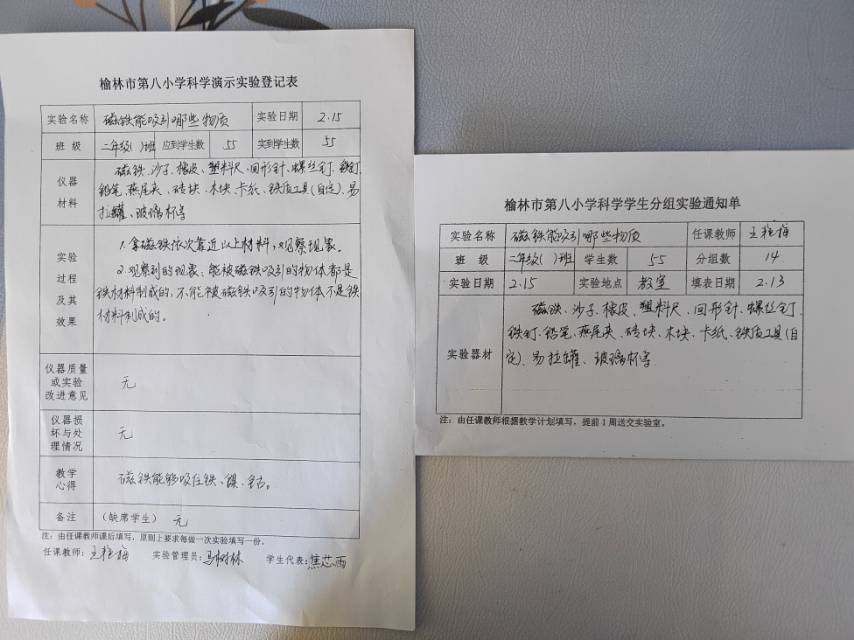 榆林市第八小学科学演示实验登记表
实验名称 磁铁能吸引哪些物质 实验日期 2.15
班 级 二年级( )班 应到学生数 55 实到学生数 55
仪器
材料
磁铁、沙子、橡皮、塑料尺、回形针、螺丝钉、铁钉、
铅笔、燕尾夹、砖块、木块、卡纸、铁质工具(自定)、易
拉罐、玻璃杯等
实验
过程
及其
效果
1.拿磁铁依次靠近以上材料,观察现象。
2.观察到的现象、能被磁铁吸引的物体都是
铁材料制成的,不能被磁铁吸引的物体不是铁
材料制成的。
仪器质量
或实验
改进意见
无
仪器损
坏与处
理情况
无
教学
心得
磁铁能够吸住铁、镍、钴。
备注 (缺席学生) 无
注:由任课教师课后填写,原则上要求每做一次实验填写一份。
任课教师: 王 梅 实验管理员:马树林 学生代表:焦芯雨
榆林市第八小学科学学生分组实验通知单
实验名称 磁铁能吸引哪些物质 任课教师 王 梅
班 级 二年级( )班 学生数 55 分组数 14
实验日期 2.15 实验地点 教室 填表日期 2.13
实验器材
磁铁、沙子、橡皮、塑料尺、回形针、螺丝钉、
铁钉、铅笔、燕尾夹、砖块、木块、卡纸、铁质工具(自
定)、易拉罐、玻璃杯等
注:由任课教师根据教学计划填写,提前1周送交实验室。